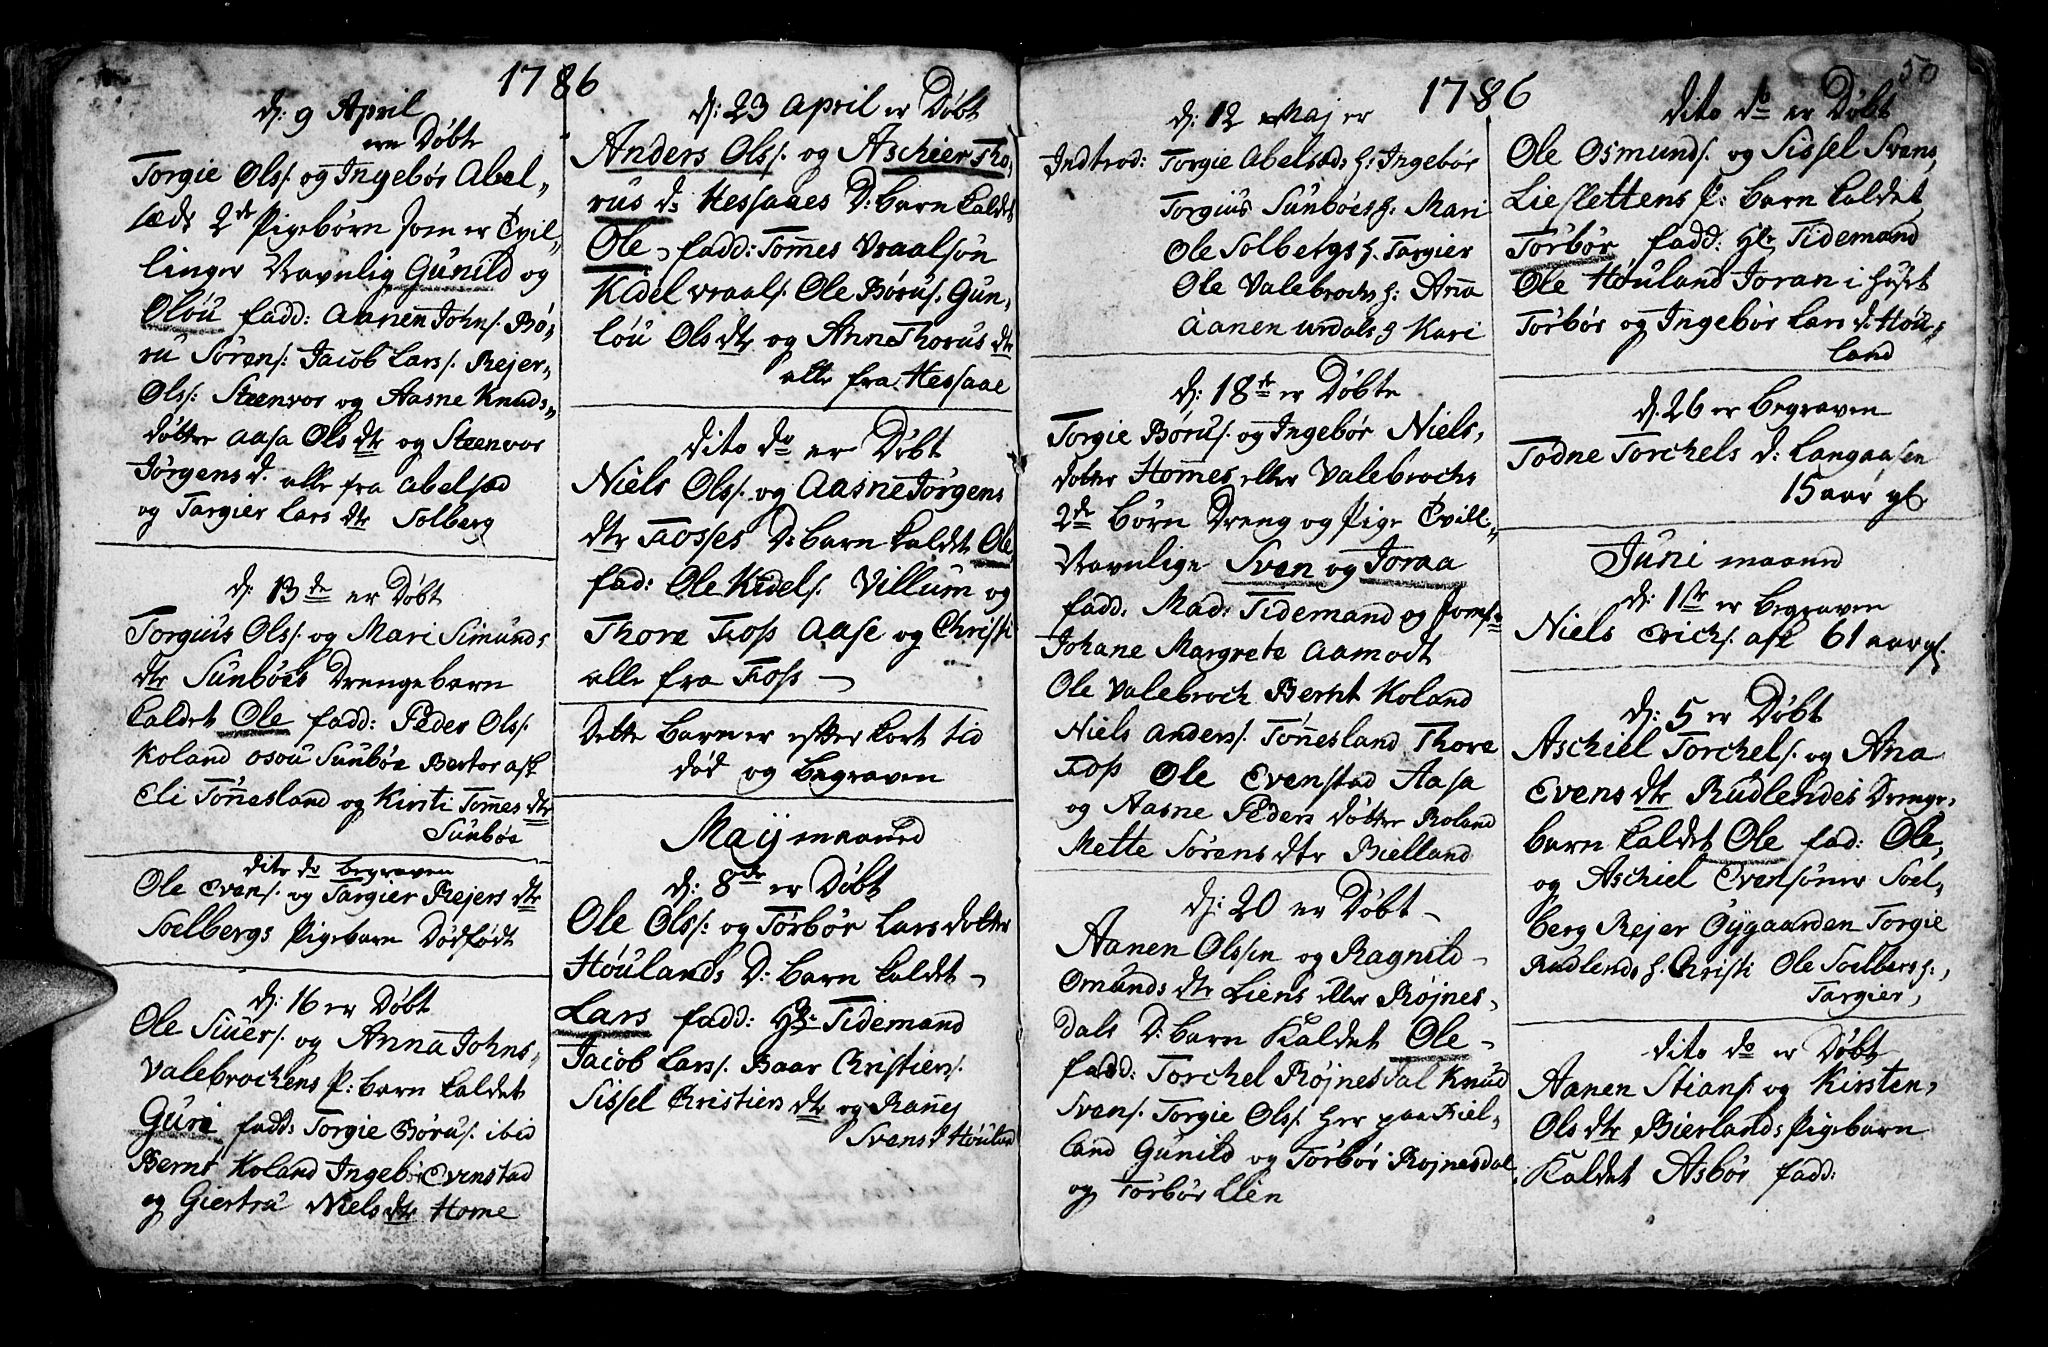 1786
dj: 9 April
ere Døbte
Torgie Olss: og Ingebør Abel„
sæds 2de Pigebørn som er Tvil„
linger Navnlig Gunild og
Oløu fadd: Aanen Johns: Bø„
ru Sørens: Jacob Lars: Rejer„
Ols: Steenvor og Aasne Knuds„
dotter Aasa Ols dtr og Steenvor
Jørgens d. alle fra Abelsæd
og Targier Lars dtr Solberg
dj: 13de er Døbt
Torguis Ols: og Mari Simunds
dtr Sunbøes Drengebarn
kaldet Ole fadd: Peder Ols:
Koland Osou Sunbøe Bertor Ask
Eli Tønnesland og Kirsti Tommes dtr
Sunbøe
dito do begraven
Ole Evens: og Targier Rejers dtr
Soelbergs Pigebarn Dødfødt
dj: 16 er Døbt
Ole Siuers: og Anna Johns„
Valebrochens P: barn kaldet
Guri fadd: Torgie Børus: ibid
Bernt Koland Ingeb: Evenstad
og Giertru Niels dtr Home
dj: 23 April er Døbt
Anders Ols: og Aschier Tho„
rus d: Hessaaes D: barn kaldet
Ole fadd: Tommes Vraalson
Kidel Vraals: Ole Børus: Gun„
løu Ols dtr og Anne Thorus dtr
alle fra Hessaae
dito do er Døbt
Niels Ols: og Aasne Jørgens
dtr Fosses D: barn kaldet Ole
fad: Ole Kidels: Villum og
Thore Foss Aase og Christi
alle fra Foss
Dette barn er efter kort tid
død og begraven
Maij maaned
dj: 8de er Døbt
Ole Ols: og Torbør Lars dotter
Høulands D: barn kaldet
Lars fadd: Hr Tidemand
Jacob Lars: Baar Christiens:
Sissel Christiens dtr og
Svens d Høuland
1786
50
dj: 12 Maj er
Indtrod: Torgie Abelsæds h: Ingebør
Torgius Sunbøes h: Mari
Ole Solbergs h. Targier
Ole Valebrochs h: Anna
Aanen Urdals h Kari
dj: 18de er Døbte
Torgie Børus: og Ingebør Niels,
dotter Hommes eller Valebrochs
2de børn Dreng og Pige Tvill„
Navnlige Sven og Joraa
fadd. Mad: Tidemand og Jomf:
Johane Margrete Aamodt
Ole Valebroch Bernt Koland
Niels Anders: Tønnesland Thore
Foss Ole Evenstad Aasa
og Aasne Peders døtter Roland
Mette Sørens dtr Bielland
dj: 20 er Døbt
Aanen Olssen og Ragnild
Omunds dtr Liens eller Røjnes„
dals D: barn Kaldet Ole
fadd: Torchel Røjnesdal Knud
Svens: Torgie Ols: her paa Biel„
land Gunild og Torbør Røjnesdal
og Torbør Lien
dito do er Døbt
Ole Osmunds: og Sissel Svens„
Lieslettens P: barn kaldet
Torbør fadd: Hr Tidemand
Ole Høuland Joran i huset
Torbør og Ingebør Lars d: Høu„
land
dj. 26 er begraven
Todne Torchels d: Langaasen
15 aar gl.
Juni maaned
dj: 1ste er begraven
Niels Erichs: Ask 61 aar gl.
dj: 5 er Døbt
Aschiel Torchels: og Ana
Evens dtr Rudlendes Drenge„
barn kaldet Ole fad: Ole,
og Aschiel Evensøner Soel„
berg Rejer Øygaarden Torgie
Rudlends h. Christi Ole Soelbers h:,
Targier,
dito do er Døbt
Aanen Stians: og Kirsten,
Ols dtr Bierlands Pigebarn
Kaldet Asbør fadd: